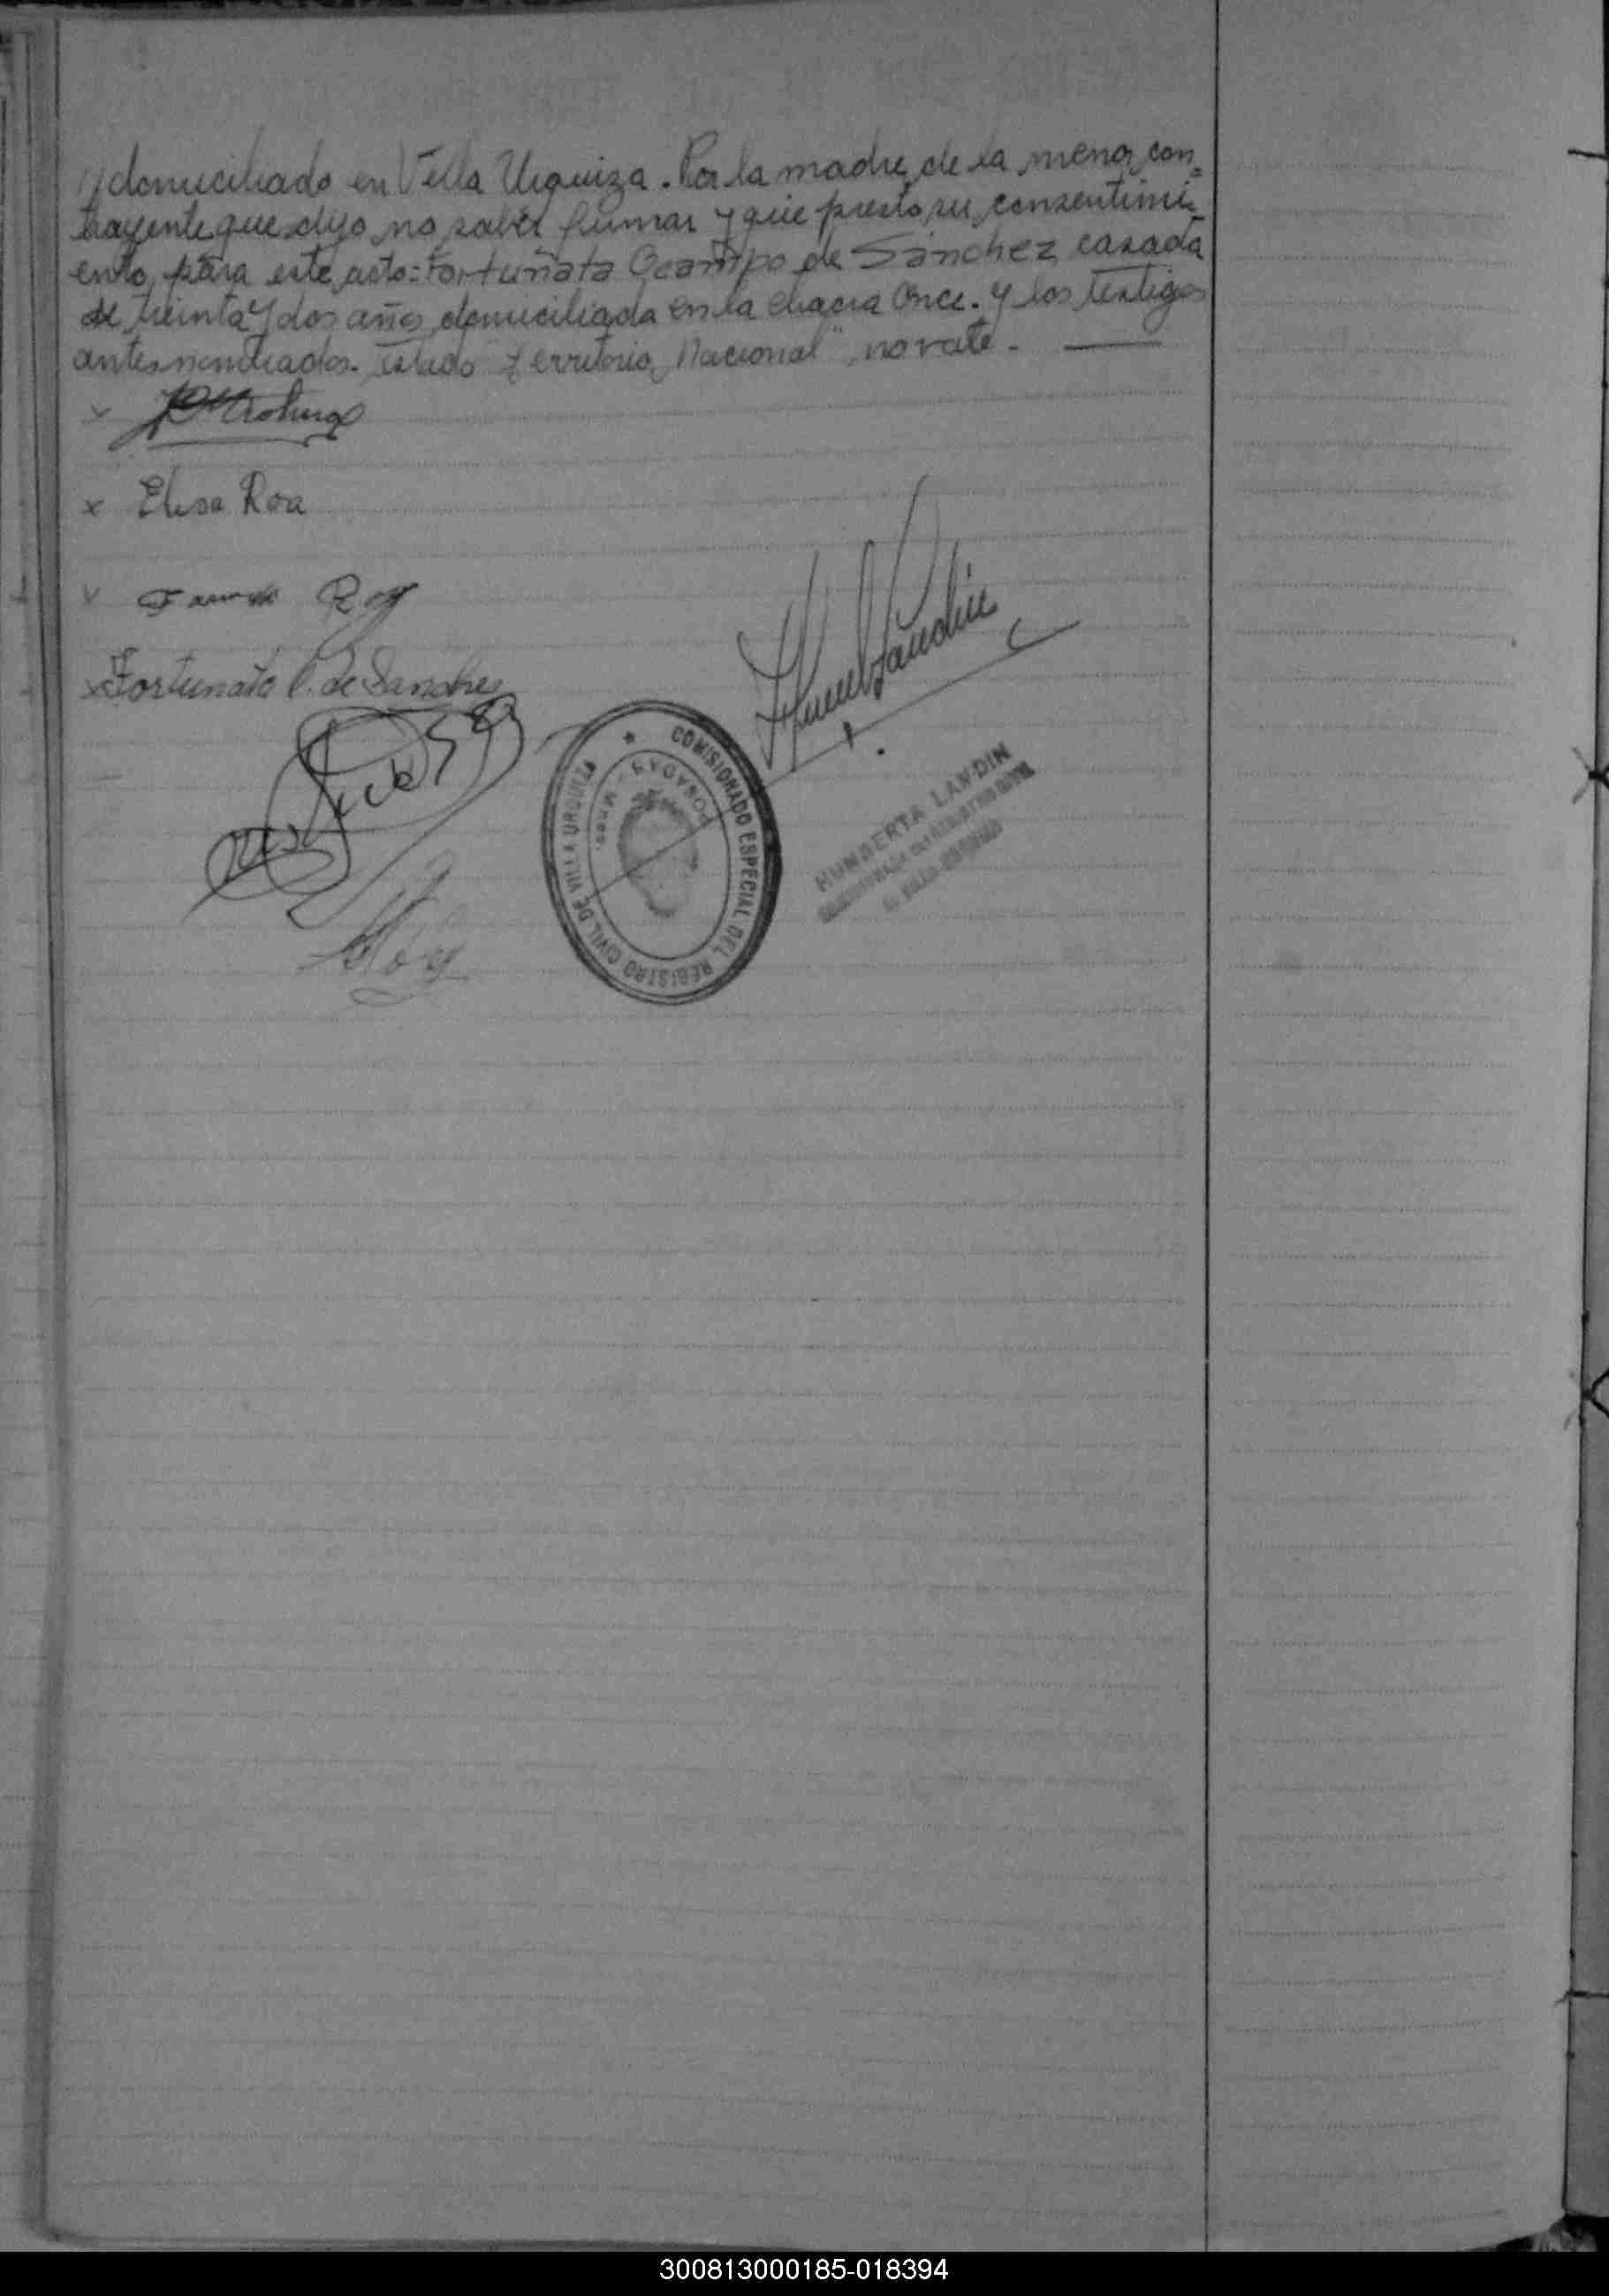 // domiciliado en Villa Urquiza. Por la madre de la menor con=
trayente que dijo no saber firmar y que prestó su consentimi=
ento para este acto: Fortuñata Ocampo de Sánchez, casada
de treinta y dos años, domiciliada en la chacra Once. y los testigos
antes nombrados. testado "territorio Nacional" no vale. —
x
x Elisa Roa
x Roa
x Fortunata O. de Sanches
COMISIONADO ESPECIAL DEL REGISTRO CIVIL DE VILLA URQUIZA
POSADAS - Mnes.
HUMBERTA LANDIN
300813000185-018394